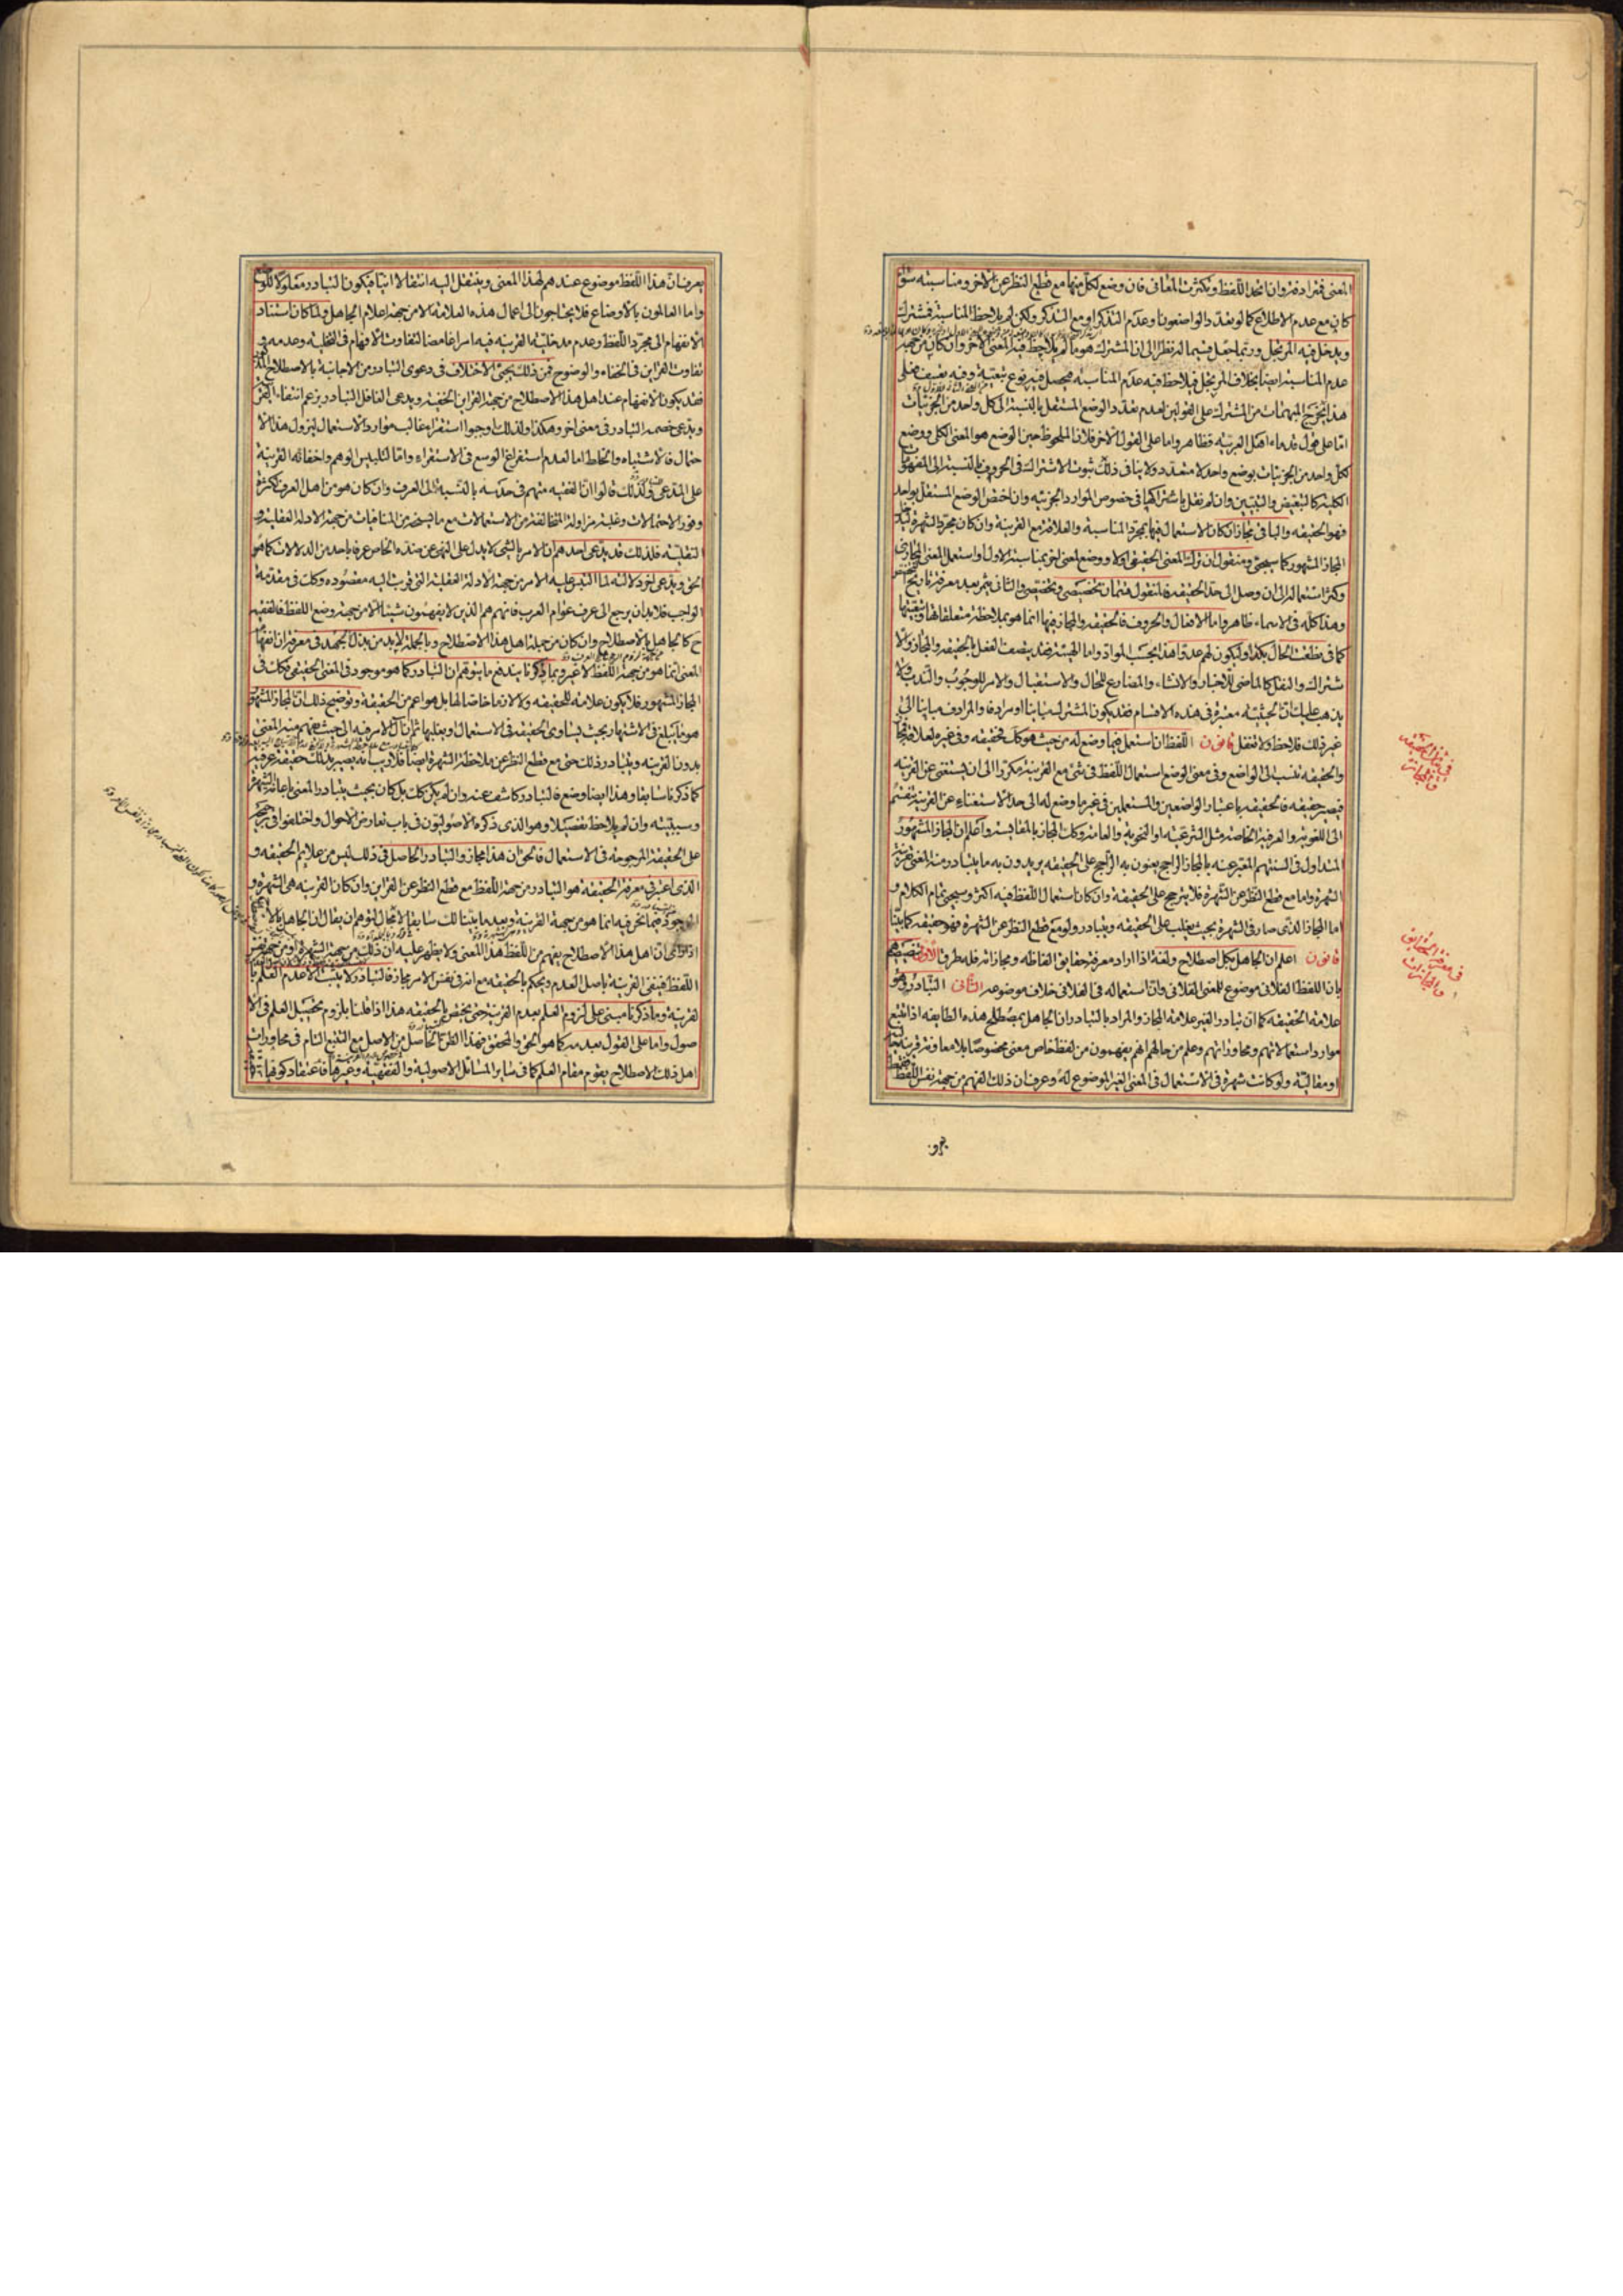 المعنى فمترادفة وان اتحد اللفظ وتكثرت المعانى فان وضع لكل منها مع قطع النظر عن الاخر ومناسبته سواء
كان مع عدم الاطلاع كما لو تعدد الواضعون او عدم التذكر او مع التذكر ولكن لم يلاحظ المناسبة فمشترك
ويدخل فيه المرتجل وربما جعل قسيما له نظرا الى ان المشترك هو ما لم يلاحظ فيه المعنى الاخر وان كان من جهة
عدم المناسبة ايضا بخلاف المرتجل فيلاحظ فيه عدم المناسبة فيحصل فيه نوع تبعية وفيه تعسف فعلى
هذا يخرج المبهمات من المشترك على القولين لعدم تعدد الوضع المستقل بالنسبة الى كل واحد من الجزئيات
اما على قول قدماء اهل العربية فظاهر واما على القول الاخر فلان الملحوظ حين الوضع هو المعنى الكلى ووضع
لكل واحد من الجزئيات بوضع واحد لا متعدد ولا ينافى ذلك ثبوت الاشتراك فى الحروف بالنسبة الى المفهومات
الكلية كالتبعيض والتبيين وان لم نقل باشتراكها فى خصوص الموارد الجزئية وان اختص الوضع المستقل بواحد
فهو الحقيقة والباقى مجاز ان كان الاستعمال فيها بمجرد المناسبة والعلاقة مع القرينة وان كان بمجرد الشهرة فيدخل
المجاز المشهور كما سيجئ ومنقول ان ترك المعنى الحقيقى اولا ووضع لمعنى اخر بمناسبة الاول او استعمل المعنى المجازى
وكثر استعماله الى ان وصل الى حد الحقيقة فالمنقول قسمان تخصيصى وتخصصى والثانى يثمر بعد معرفة تاريخ التخصيص
وهذا كله فى الاسماء ظاهر واما الافعال والحروف فالحقيقة والمجاز فيها انما هو بملاحظة متعلقاتها وتبعيتها
كما فى نطقت الحال بكذا وليكون لهم عدوا هذا بحسب المواد واما الهيئة فقد يتصف الفعل بالحقيقة والمجاز والا
شتراك والنقل كالماضى للاخبار والانشاء والمضارع للحال والاستقبال والامر للوجوب والندب ولا
يذهب عليك ان الحيثية معتبرة فى هذه الاقسام فقد يكون المشترك مباينا او مرادفا والمرادف مباينا الى
غير ذلك فلاحظ ولا تغفل قانون اللفظ ان استعمل فيما وضع له من حيث هو كك فحقيقة وفى غيره لعلاقة فمجاز
والحقيقة تنسب الى الواضع وفى معنى الوضع استعمال اللفظ فى شئ مع القرينة مكررا الى ان يستغنى عن القرينة
فيصير حقيقة فالحقيقة باعتبار الواضعين والمستعملين فى غير ما وضع له الى حد الاستغناء عن القرينة ينقسم
الى اللغوية والعرفية الخاصة مثل الشرعية او النحوية والعامة وكك المجاز بالمقايسة واعلم ان المجاز المشهور
المتداول فى السنتهم المعبر عنه بالمجاز الراجح يعنون به الراجح على الحقيقة يريدون به ما يتبادر منه المعنى بقرينة
الشهرة واما مع قطع النظر عن الشهرة فلا يترجح على الحقيقة وان كان استعمال اللفظ فيه اكثر وسيجئ تمام الكلام و
اما المجاز الذى صار فى الشهرة بحيث يغلب على الحقيقة ويتبادر ولو مع قطع النظر عن الشهرة فهو حقيقة كما بينا
قانون اعلم ان الجاهل بكل اصطلاح ولغة اذا اراد معرفة حقايق الفاظه ومجازاته فله طرق الاول تنصيصهم
بان اللفظ الفلانى موضوع للمعنى الفلانى وان استعماله فى الفلانى خلاف موضوعه الثانى التبادر وهو
علامة الحقيقة كما ان تبادر الغير علامة المجاز والمراد بالتبادر ان الجاهل بمصطلح هذه الطايفة اذا تتبع
موارد استعمالاتهم ومحاوراتهم وعلم من حالهم انهم يفهمون من لفظ خاص معنى مخصوصا بلا معاونة قرينة حالية
او مقالية ولو كانت شهرة فى الاستعمال فى المعنى الغير الموضوع له وعرف ان ذلك الفهم من جهة نفس اللفظ
فى بيان الحقيقة
والمجاز
فى معرفة الحقايق
والمجازات
يعرف ان هذا اللفظ موضوع عندهم لهذا المعنى وينتقل اليه انتقالا انيا فيكون التبادر معلولا للوضع
واما العالمون بالاوضاع فلا يحتاجون الى اعمال هذه العلامة الا من جهة اعلام الجاهل ولما كان استناد
الانفهام الى مجرد اللفظ وعدم مدخلية القرينة فيه امرا غامضا لتفاوت الافهام فى التخلية وعدمه و
تفاوت القراين فى الخفاء والوضوح فمن ذلك يجئ الاختلاف فى دعوى التبادر من الاجانبة بالاصطلاح
فقد يكون الانفهام عند اهل هذا الاصطلاح من جهة القراين الخفية ويدعى الغافل التبادر بزعم انتفاء القرينة
ويدعى خصمه التبادر فى معنى اخر وهكذا ولذلك اوجبوا استقراء غالب موارد الاستعمال ليزول هذا الا
حتمال فالاشتباه والخلط اما لعدم استفراغ الوسع فى الاستقراء واما لتلبيس الوهم واخفائه القرينة
على المدعى ولذلك قالوا ان الفقيه متهم فى حدسه بالنسبة الى العرف وان كان هو من اهل العرف لكثرة
وفور الاحتمالات وغلبة مزاولة المتخالفة من الاستعمالات مع ما يسنحه من المنافيات من جهة الادلة العقلية و
النقلية فلذلك قد يدعى احدهم ان الامر بالشئ لا يدل على النهى عن ضده الخاص عرفا باحد من الدلالات كما هو
الحق ويدعى اخر دلالته لما التبس عليه الامر من جهة الادلة العقلية التى قربت اليه مقصوده وكك فى مقدمة
الواجب فلا بد ان يرجع الى عرف عوام العرب فانهم هم الذين لا يفهمون شيئا الا من جهة وضع اللفظ فالفقيه
ح كالجاهل بالاصطلاح وان كان من جملة اهل هذا الاصطلاح وبالجملة لا بد من بذل الجهد فى معرفة ان انفهام
المعنى انما هو من جهة اللفظ لا غير وبما ذكرنا يندفع ما يتوهم ان التبادر كما هو موجود فى المعنى الحقيقى فكك فى
المجاز المشهور فلا يكون علامة للحقيقة ولا لازما خاصا لها بل هو اعم من الحقيقة وتوضيح ذلك ان المجاز المشهور
هو ما يبلغ فى الاشتهار بحيث يساوى الحقيقة فى الاستعمال او يغلبها ثم ان آل الامر فيه الى حيث يفهم منه المعنى
بدون القرينة ويتبادر ذلك حتى مع قطع النظر عن ملاحظة الشهرة ايضا فلا ريب انه يصير بذلك حقيقة عرفية
كما ذكرنا سابقا وهذا ايضا وضع فالتبادر كاشف عنه وان لم يكن كك بل كان بحيث يتبادر المعنى باعانة الشهرة
وسببيته وان لم يلاحظ تفصيلا وهو الذى ذكره الاصوليون فى باب تعارض الاحوال واختلفوا فى ترجيحه
على الحقيقة المرجوحة فى الاستعمال فالحق ان هذا مجاز والتبادر الحاصل فى ذلك ليس من علائم الحقيقة و
الذى اعتبر فى معرفة الحقيقة هو التبادر من جهة اللفظ مع قطع النظر عن القراين وان كان القرينة هى الشهرة و
الموجود فيما نحن فيه انما هو من جهة القرينة وبعد ما بينا لك سابقا لا مجال لتوهم ان يقال ان الجاهل بالاصطلاح
اذا راى ان اهل هذا الاصطلاح يفهم من اللفظ هذا المعنى ولا يظهر عليه ان ذلك من جهة الشهرة او من جهة نفس
اللفظ فينفى القرينة باصل العدم ويحكم بالحقيقة مع انه فى نفس الامر مجاز فالتبادر لا يثبت الا عدم العلم بال
قرينة وما ذكرنا مبنى على لزوم العلم بعدم القرينة حتى يختص بالحقيقة هذا اذا قلنا بلزوم تحصيل العلم فى الا
صول واما على القول بعدمه كما هو الحق والمحقق فهذا الظن الحاصل من الاصل مع التتبع التام فى محاورات
اهل ذلك الاصطلاح يقوم مقام العلم كما فى ساير المسائل الاصولية والفقهية وغيرها فاعتقاد كونها